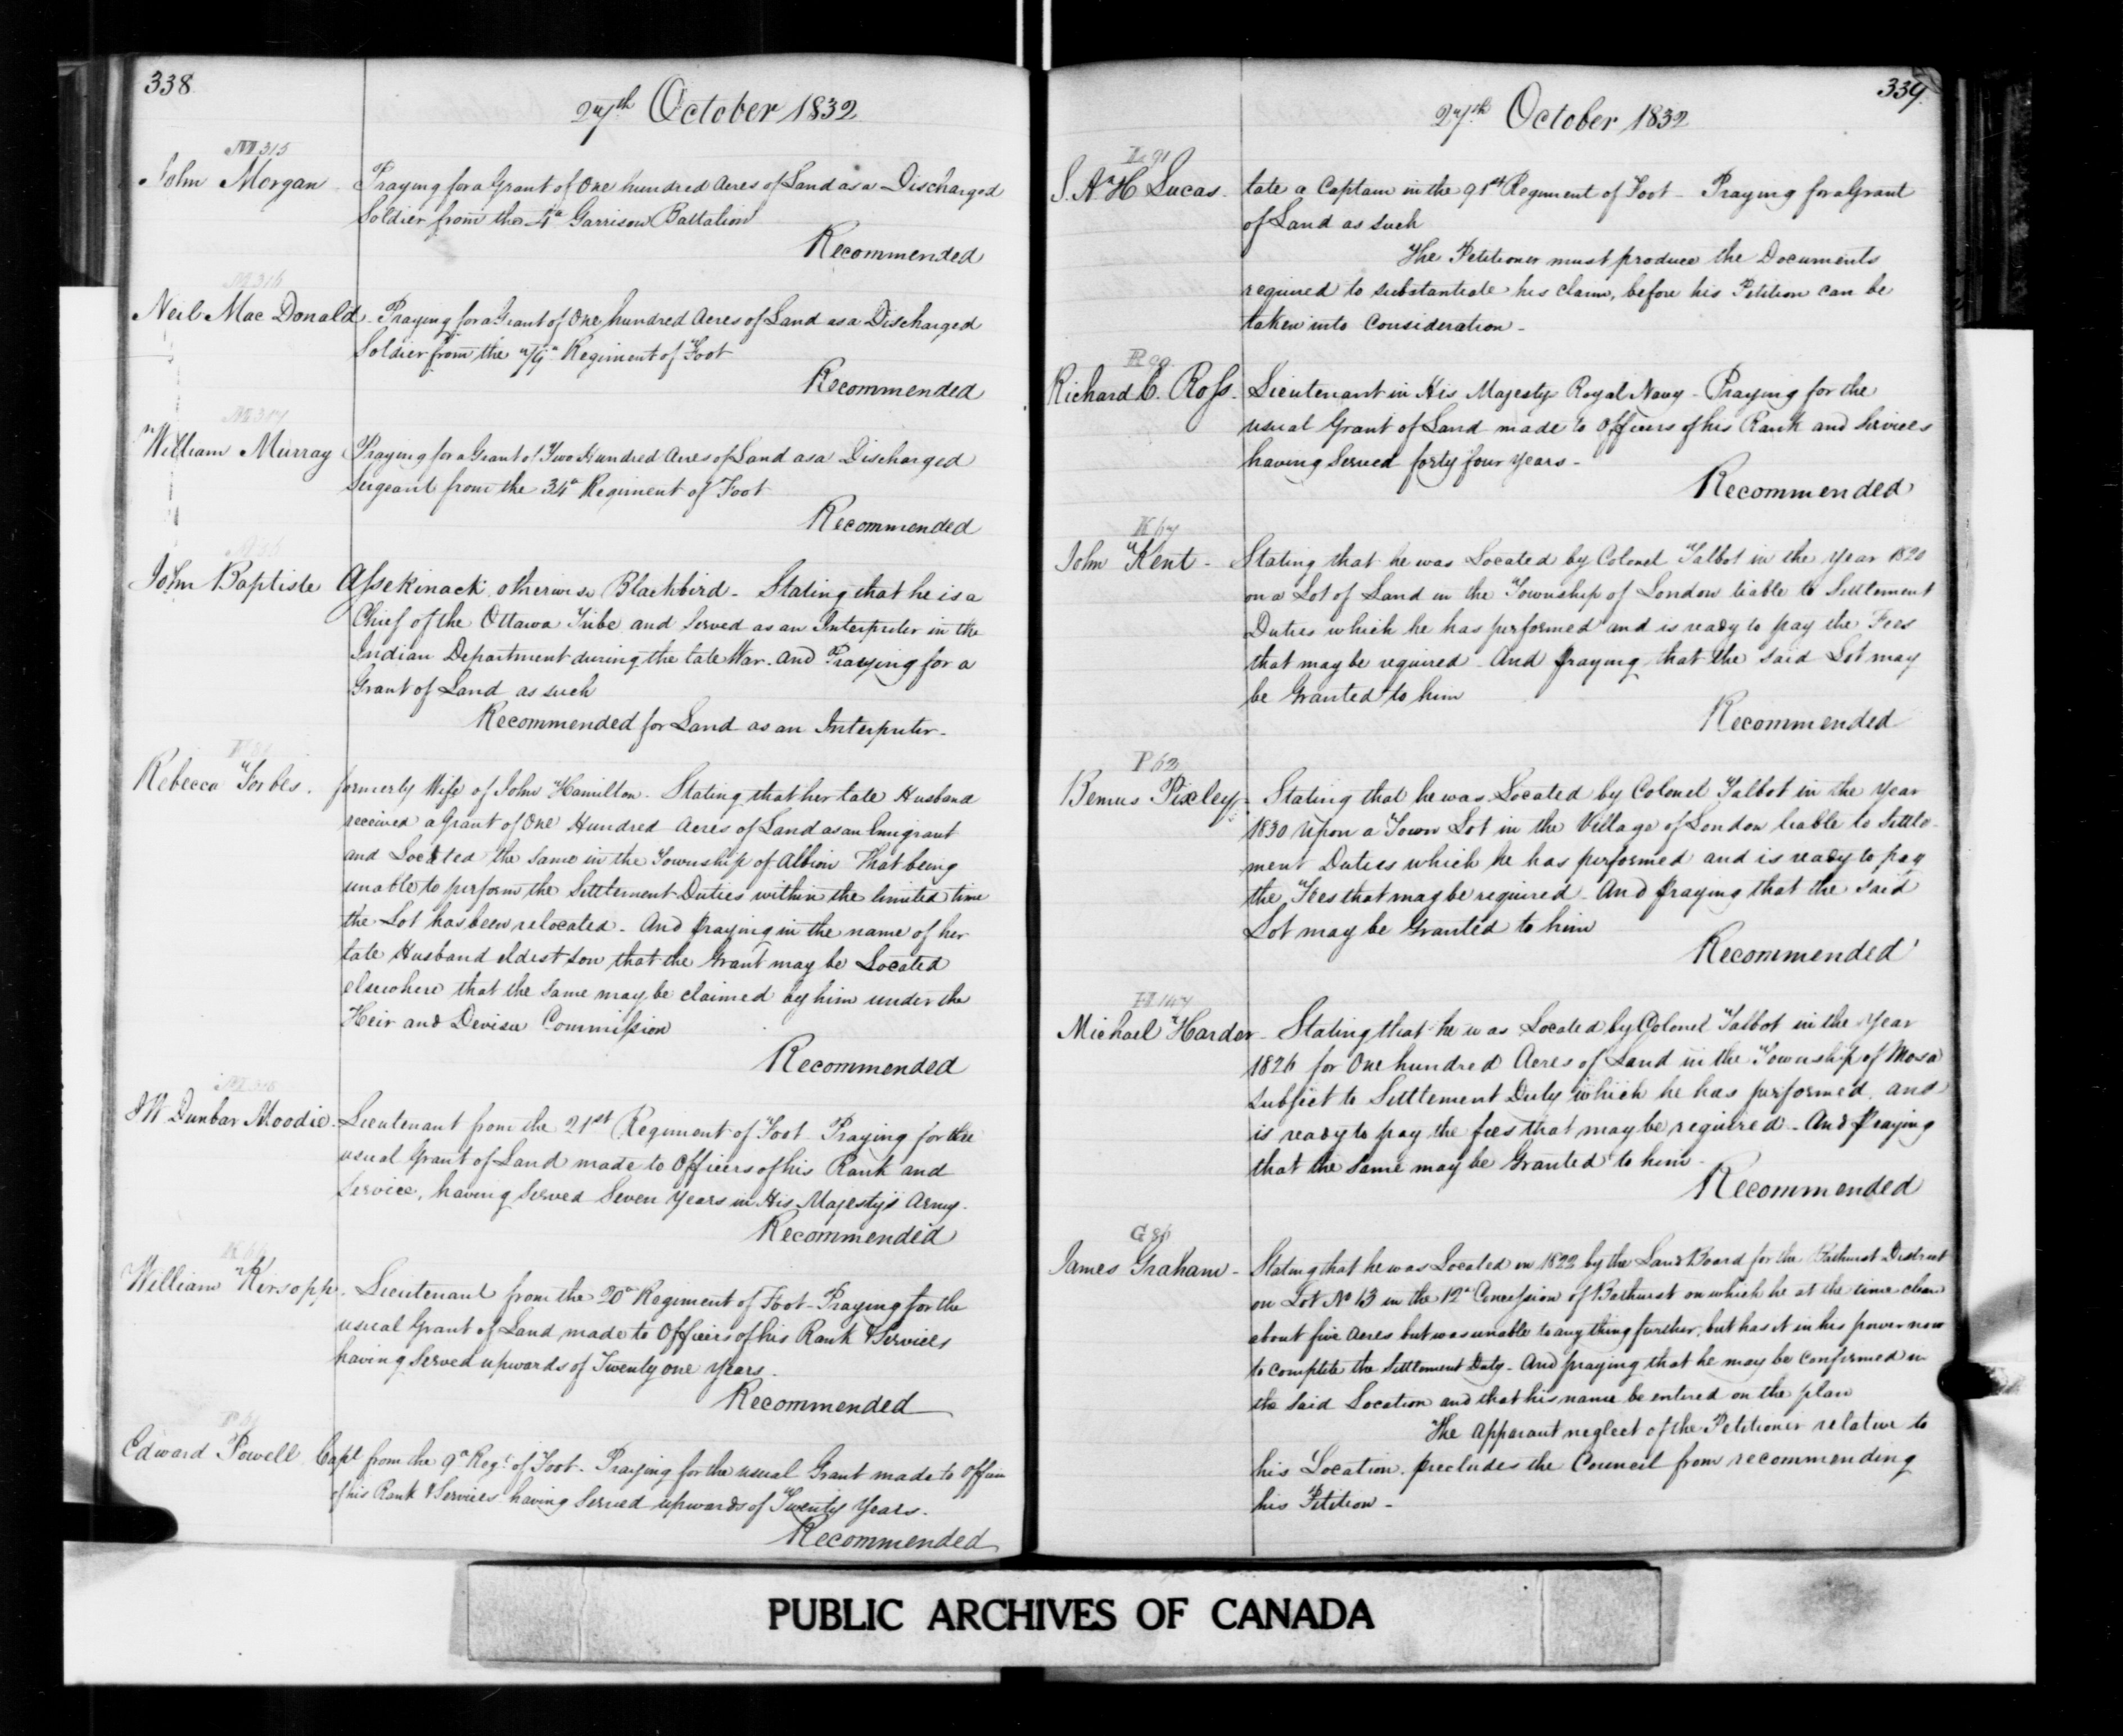 338
27th October 1832
M 315
John Morgan Praying for a Grant of One hundred Acres of Land as a Discharged
Soldier from the 4th Garrison Battalion
Recommended
M 316
Neil Mac Donald - Praying for a Grant of One hundred Acres of Land as a Discharged
Soldier from the 79th Regiment of Foot
Recommended
M 317
William Murray Praying for a Grant of Two Hundred Acres of Land as a Discharged
Sergeant from the 34th Regiment of Foot
Recommended
John Baptiste Assekinack otherwise Blackbird - Stating that he is a
Chief of the Ottawa Tribe and Served as an Interpreter in the
Indian Department during the late War. And Praying for a
Grant of Land as such
Recommended for Land as an Interpreter -
Rebecca Forbes. formerly Wife of John Hamilton - Stating that her late Husband
received a Grant of One Hundred Acres of Land as an Emigrant
and Located the same in the Township of Albion That being
unable to perform the Settlement Duties within the limited time
the Lot has been relocated - And Praying in the name of her
late Husband eldest Son that the Grant may be Located
elsewhere that the same may be claimed by him under the
Heir and Devisee Commission
Recommended
M 318
J W Dunbar Moodie - Lieutenant from the 21st Regiment of Foot Praying for the
usual Grant of Land made to Officers of his Rank and
Service, having Served Seven Years in His Majesty's Army.
Recommended
K 66
William Kirsopp. Lieutenant from the 20th Regiment of Foot - Praying for the
usual Grant of Land made to Officers of his Rank & Services
having Served upwards of Twenty one Years.
Recommended
Edward Powell Capt from the 9th Regt of Foot - Praying for the usual Grant made to Officers
of his Rank & Services having Served upwards of Twenty Years.
Recommended
339
27th October 1832
L 91
S. A. H Lucas. late a Captain in the 91st Regiment of Foot - Praying for a Grant
of Land as such
The Petitioner must produce the Documents
required to substantiate his claim, before his Petition can be
taken into Consideration -
Richard C. Ross. Lieutenant in His Majesty Royal Navy - Praying for the
usual Grant of Land made to Officers of his Rank and Services
having Served forty four Years -
Recommended
K 67
John Kent - Stating that he was Located by Colonel Talbot in the Year 1820
on a Lot of Land in the Township of London liable to Settlement
Duties which he has performed and is ready to pay the Fees
that may be required And Praying that the said Lot may
be Granted to him
Recommended
P 62
Bemus Pixley - Stating that he was Located by Colonel Talbot in the Year
1830 Upon a Town Lot in the Village of London liable to Settle-
ment Duties which he has performed and is ready to pay
the Fees that may be required - And Praying that the said
Lot may be Granted to him
Recommended
H 147
Michael Harder - Stating that he was Located by Colonel Talbot in the Year
1826 for One hundred Acres of Land in the Township of Mosa
subject to Settlement Duty which he has performed, and
is ready to pay the fees that may be required - And Praying
that the same may be Granted to him -
Recommended
G 86
James Graham - Stating that he was Located in 1822 by the Land Board for the Bathurst District
on Lot No 13 in the 12th Concession of Bathurst on which he at the time clear
about five Acres but was unable to any thing further, but has it in his power now
to complete the Settlement Duty - And praying that he may be confirmed in
the said Location and that his name be entered on the plan
The Apparant neglect of the Petitioner relative to
his Location, precludes the Council from recommending
his Petition -
PUBLIC ARCHIVES OF CANADA